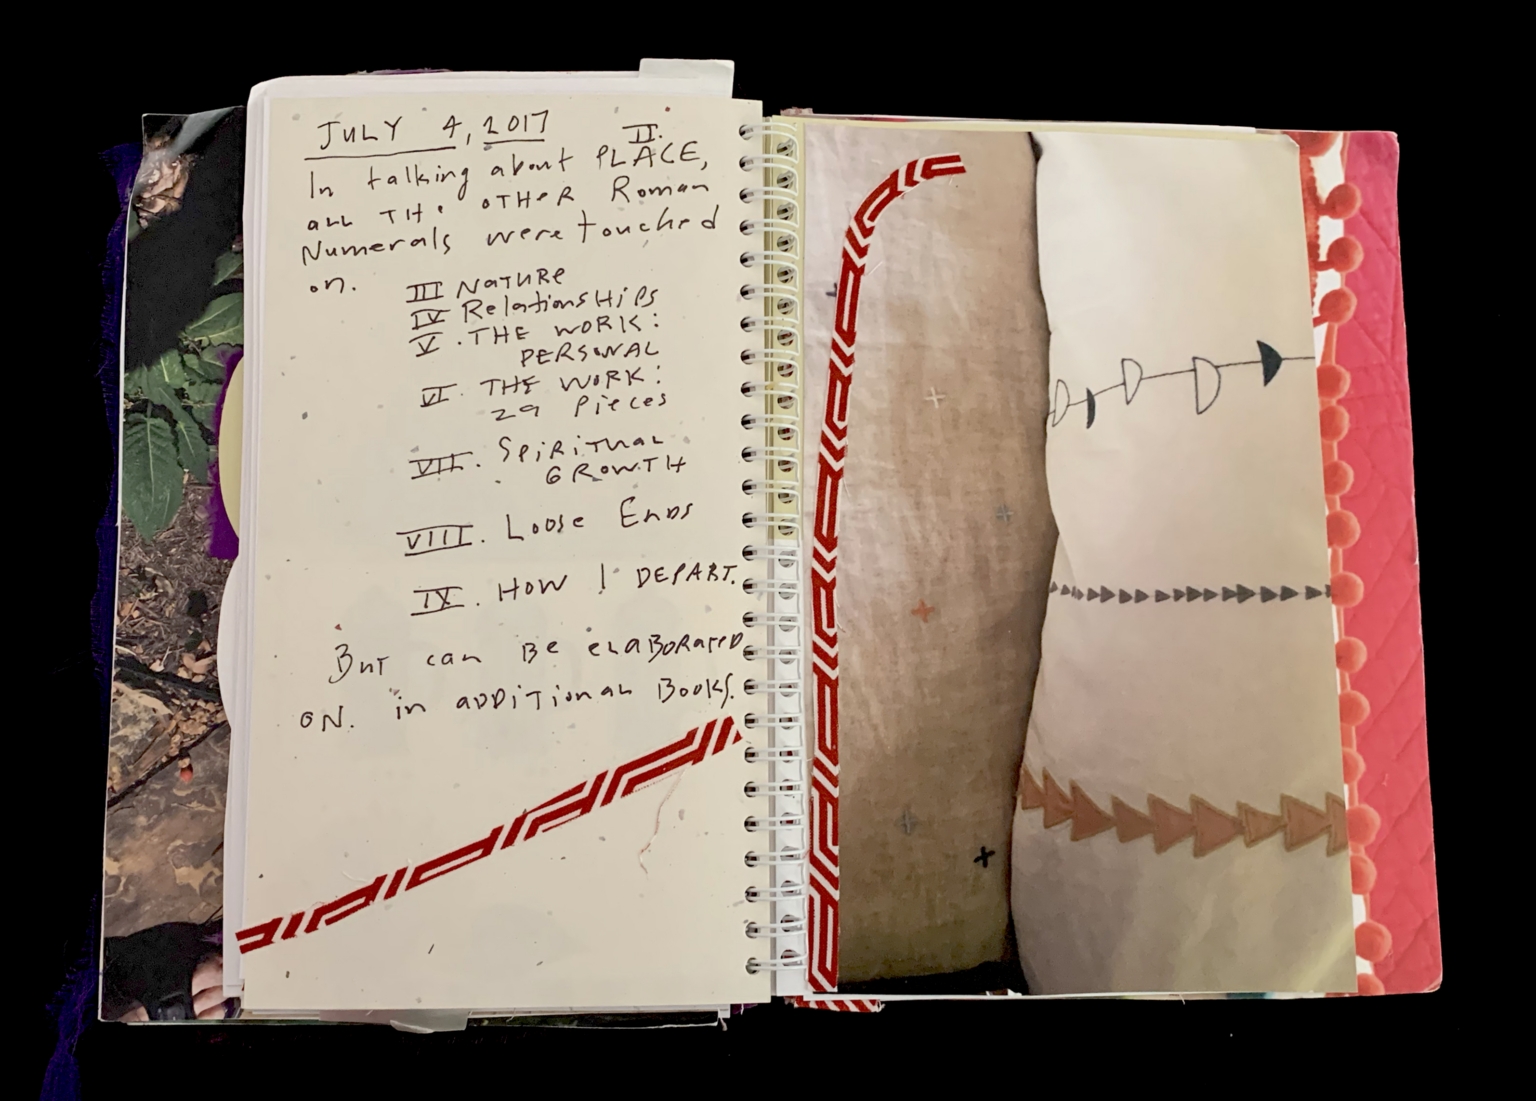 JULY 4, 2017
In talking about II. PLACE,
all THe OTHeR Roman
Numerals were touched
on.
III Nature
IV Relationships
V. THE WORK:
PERSONAL
VI. THE WORK:
29 Pieces
VII. Spiritual
GROWTH
VIII. Loose Ends
IX. HOW I DEPART.
But can Be elaBorateD
ON. in aDDitional Books.